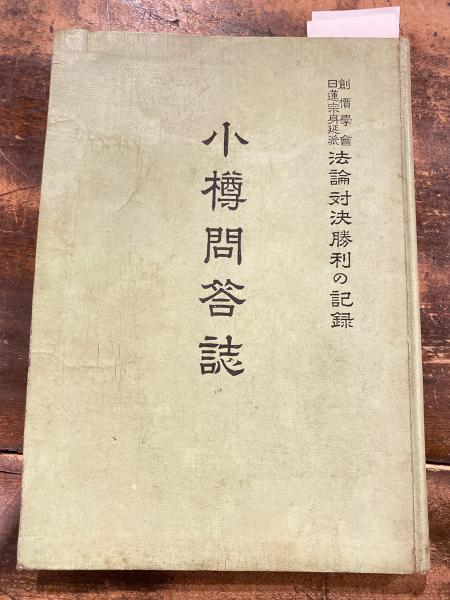 創價學會
日蓮宗身延派
法論対決勝利の記録
小樽問答誌